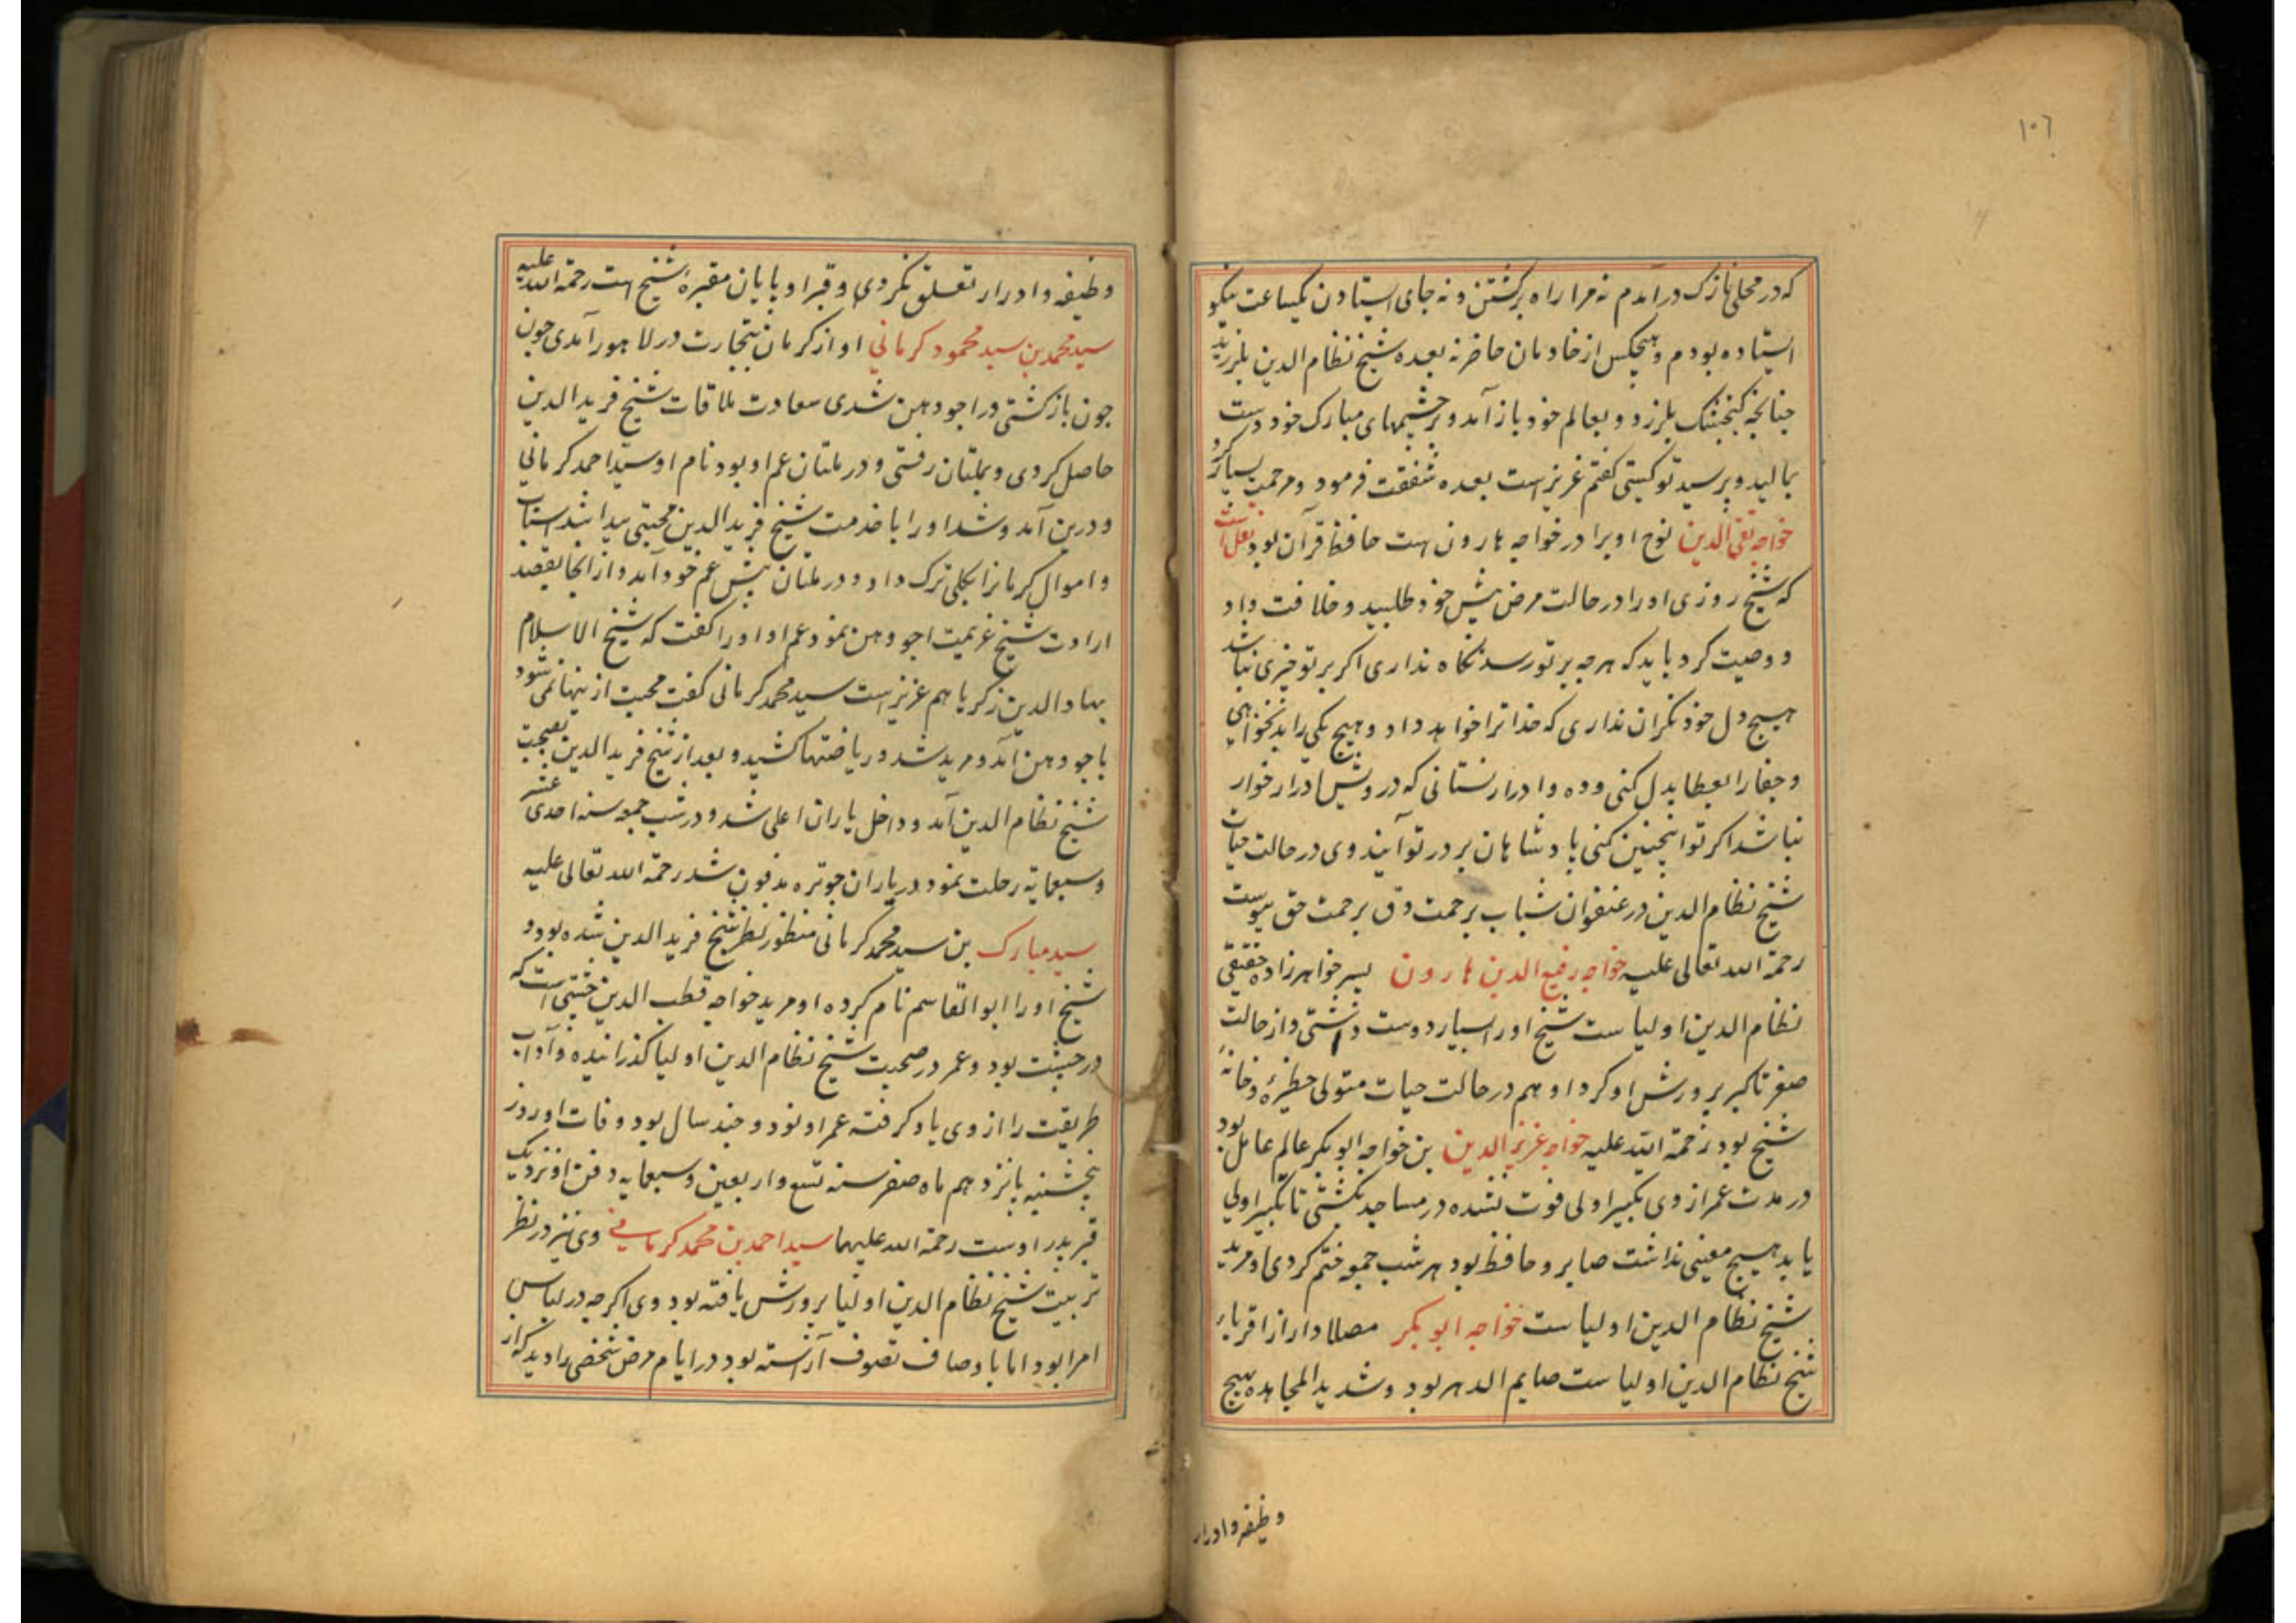 ۱۰۶
که در محلی نازک درآمدم نه مرا راه برکشتن و نه جای ایستادن یکساعت نیکو
استاده بودم و هیچکس از خادمان حاضر نه بعده شیخ نظام الدین بلرزید
چنانچه کنجشک بلرزد و بعالم خود باز آمد و بر چشمهای مبارک خود دست
بمالید و پرسید تو کیستی کفتم عزیز است بعده شفقت فرمود و مرحمت بسیار کرد
خواجه تقی الدین نوح او برادر خواجه هارون ست حافظ قرآن بود نقل است
که شیخ روزی او را در حالت مرض پیش خود طلبید و خلافت داد
و وصیت کرد باید که هرچه بر تو رسد نکاه نداری اکر بر تو چیزی نباشد
هیچ دل خود نکران نداری که خدا ترا خواهد داد و هیچ یکی را بد نخواهی
و جفا را بعطا بدل کنی و ده و ادرار نستانی که درویش ادرار خوار
نباشد اکر تو اینچنین کنی پادشاهان بر در تو آیند وی در حالت حیات
شیخ نظام الدین در عنفوان شباب بزحمت دق برحمت حق پیوست
رحمة الله تعالی علیه خواجه رفیع الدین هارون پسر خواهرزاده حقیقی
نظام الدین اولیاست شیخ او را بسیار دوست داشتی و از حالت
صغر تا کبر پرورش او کرد او هم در حالت حیات متولی حظیره و خانهٔ
شیخ بود رحمة الله علیه خواجه عزیز الدین بن خواجه ابوبکر عالم عامل بود
در مدت عمر از وی تکبیر اولی فوت نشده در مساجد بکشتی تا تکبیر اولی
یابد هیچ معینی نداشت صابر و حافظ بود هر شب جمعه ختم کردی و مرید
شیخ نظام الدین اولیاست خواجه ابوبکر مصلادار از اقرباء
شیخ نظام الدین اولیاست صایم الدهر بود و شدید المجاهده هیچ
وظیفه و ادرار
وظیفه و ادرار تعلق نکردی و قبر او پایان مقبرهٔ شیخ است رحمة الله علیه
سید محمد بن سید محمود کرمانی او از کرمان بتجارت در لاهور آمدی چون
چون بازکشتی در اجودهن شدی سعادت ملاقات شیخ فرید الدین
حاصل کردی و بملتان رفتی و در ملتان عم او بود نام او سید احمد کرمانی
و درین آمد و شد او را با خدمت شیخ فرید الدین محبتی پیدا شد اسباب
و اموال کرمان را بکلی ترک داد و در ملتان پیش عم خود آمد و از آنجا بقصد
ارادت شیخ عزیمت اجودهن نمود عم او او را کفت که شیخ الاسلام
بهاء الدین زکریا هم عزیز است سید محمد کرمانی کفت محبت از ینها نمی شود
باجودهن آمد و مرید شد و ریاضتها کشید و بعد از شیخ فرید الدین بصحبت
شیخ نظام الدین آمد و داخل یاران اعلی شد و در شب جمعه سنه احدی عشر
و سبعمایة رحلت نمود در یاران چوتره مدفون شد رحمة الله تعالی علیه
سید مبارک بن سید محمد کرمانی منظور نظر شیخ فرید الدین شده بود و
شیخ او را ابو القاسم نام کرده او مرید خواجه قطب الدین چشتی است که
در چشت بود و عمر در صحبت شیخ نظام الدین اولیا کذرانیده و آداب
طریقت را از وی یاد کرفته عمر او نود و چند سال بود وفات او روز
پنجشنبه پانزدهم ماه صفر سنه تسع و اربعین و سبعمایه دفن او نزدیک
قبر پدر اوست رحمة الله علیهما سید احمد بن محمد کرمانی وی نیز در نظر
تربیت شیخ نظام الدین اولیا پرورش یافته بود وی اکرچه در لباس
امرا بود اما باوصاف تصوف آراسته بود در ایام مرض شخصی را دید که از